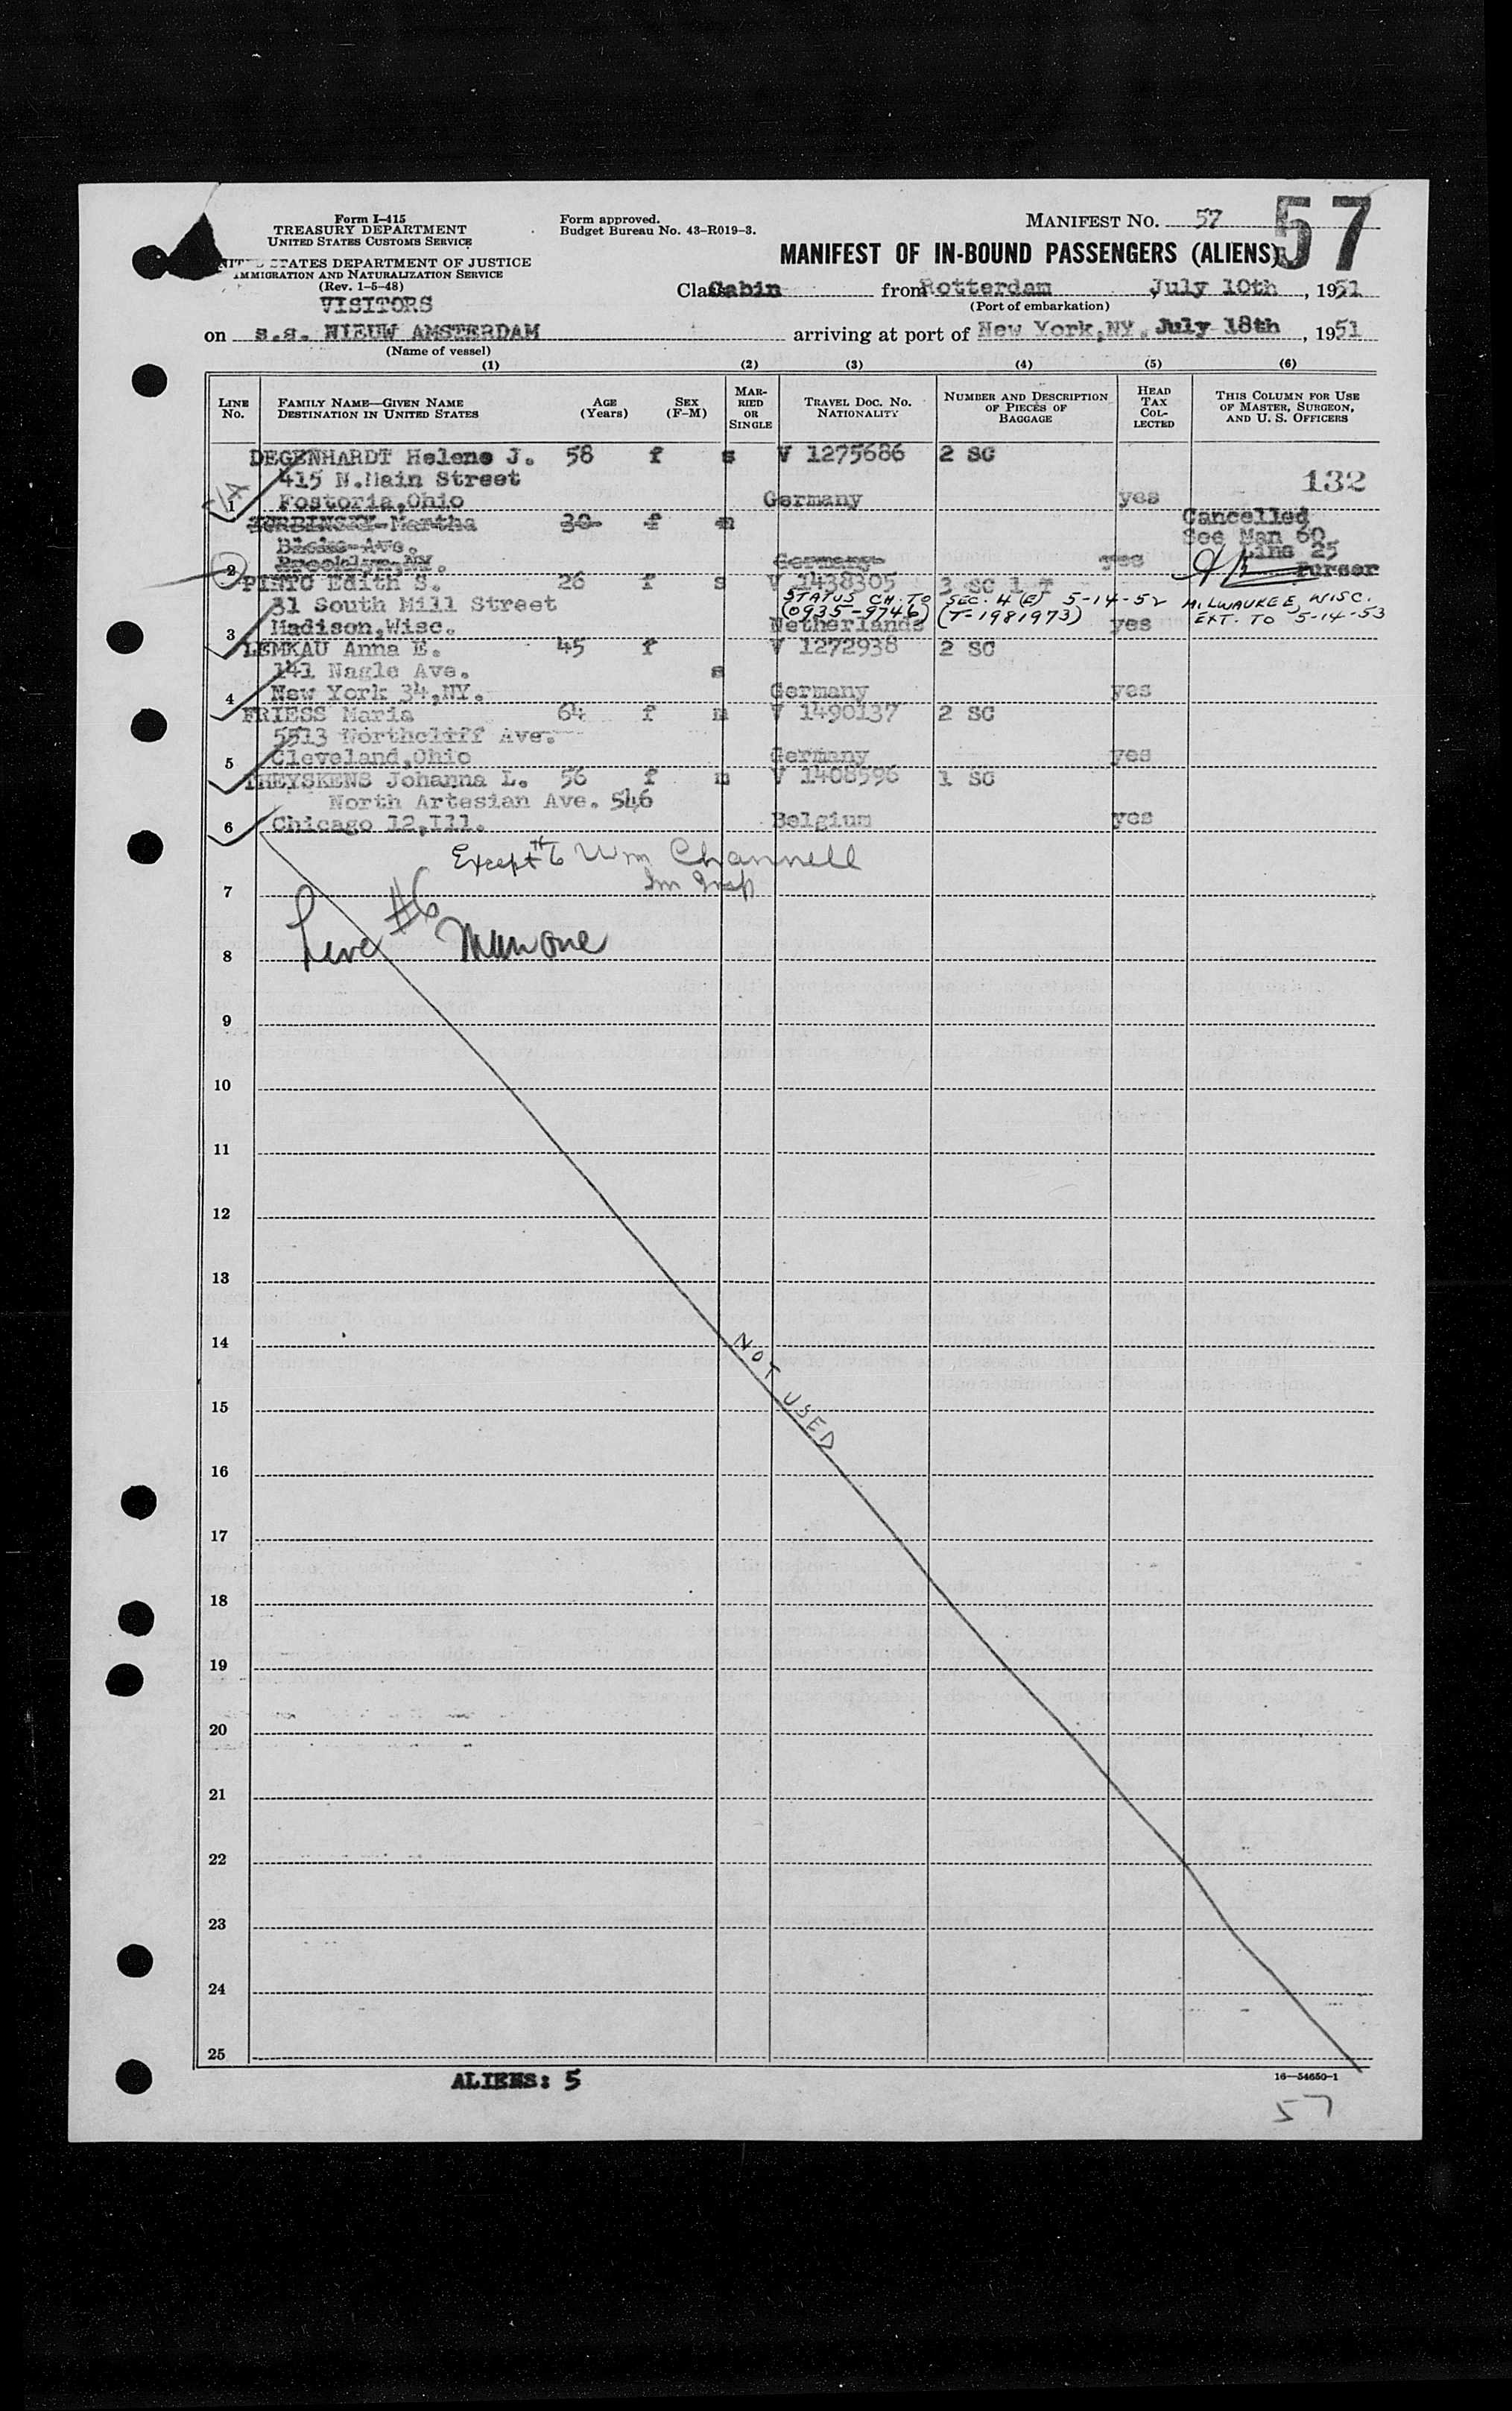 Form I-415
TREASURY DEPARTMENT
UNITED STATES CUSTOMS SERVICE
STATES DEPARTMENT OF JUSTICE
IMMIGRATION AND NATURALIZATION SERVICE
(Rev. 1-5-48)
VISITORS
Form approved.
Budget Bureau No. 43-R019-3.
MANIFEST NO. 57
57
MANIFEST OF IN-BOUND PASSENGERS (ALIENS)
Class Cabin from Rotterdam, July 10th, 1951
(Port of embarkation)
on s.s. NIEUW AMSTERDAM arriving at port of New York,NY. July 18th, 1951
(Name of vessel)
(1) (2) (3) (4) (5) (6)
LINE No. FAMILY NAME—GIVEN NAME DESTINATION IN UNITED STATES AGE (Years) SEX (F-M) MARRIED OR SINGLE TRAVEL DOC. NO. NATIONALITY NUMBER AND DESCRIPTION OF PIECES OF BAGGAGE HEAD TAX COLLECTED THIS COLUMN FOR USE OF MASTER, SURGEON, AND U. S. OFFICERS
DEGENHARDT Helene J. 58 f s V 1275686 2 SC
415 N.Main Street 132
1 Fostoria,Ohio Germany yes
Martha 30 f m Cancelled
Ave. See Man 60
2 Brooklyn,NY. Germany yes Line 25
Purser
PINTO Edith S. 26 f s V 1438305 3 SC 1 T
31 South Mill Street STATUS CH. TO SEC. 4 (E) 5-14-52 MILWAUKEE, WISC.
(0935-9746) (T-1981973) EXT. TO 5-14-53
3 Madison,Wisc. Netherlands yes
LEMKAU Anna E. 45 f V 1272938 2 SC
141 Nagle Ave. s
4 New York 34,NY. Germany yes
FRIESS Maria 64 f m V 1490137 2 SC
5513 Northcliff Ave.
5 Cleveland,Ohio Germany yes
THEYSKENS Johanna L. 56 f m V 1408596 1 SC
North Artesian Ave. 546
6 Chicago 12,Ill. Belgium yes
Except #6 Wm Channell
Im Insp
7
#6
8
9
10
11
12
13
14
NOT USED
15
16
17
18
19
20
21
22
23
24
25
ALIENS: 5
16—54650-1
57